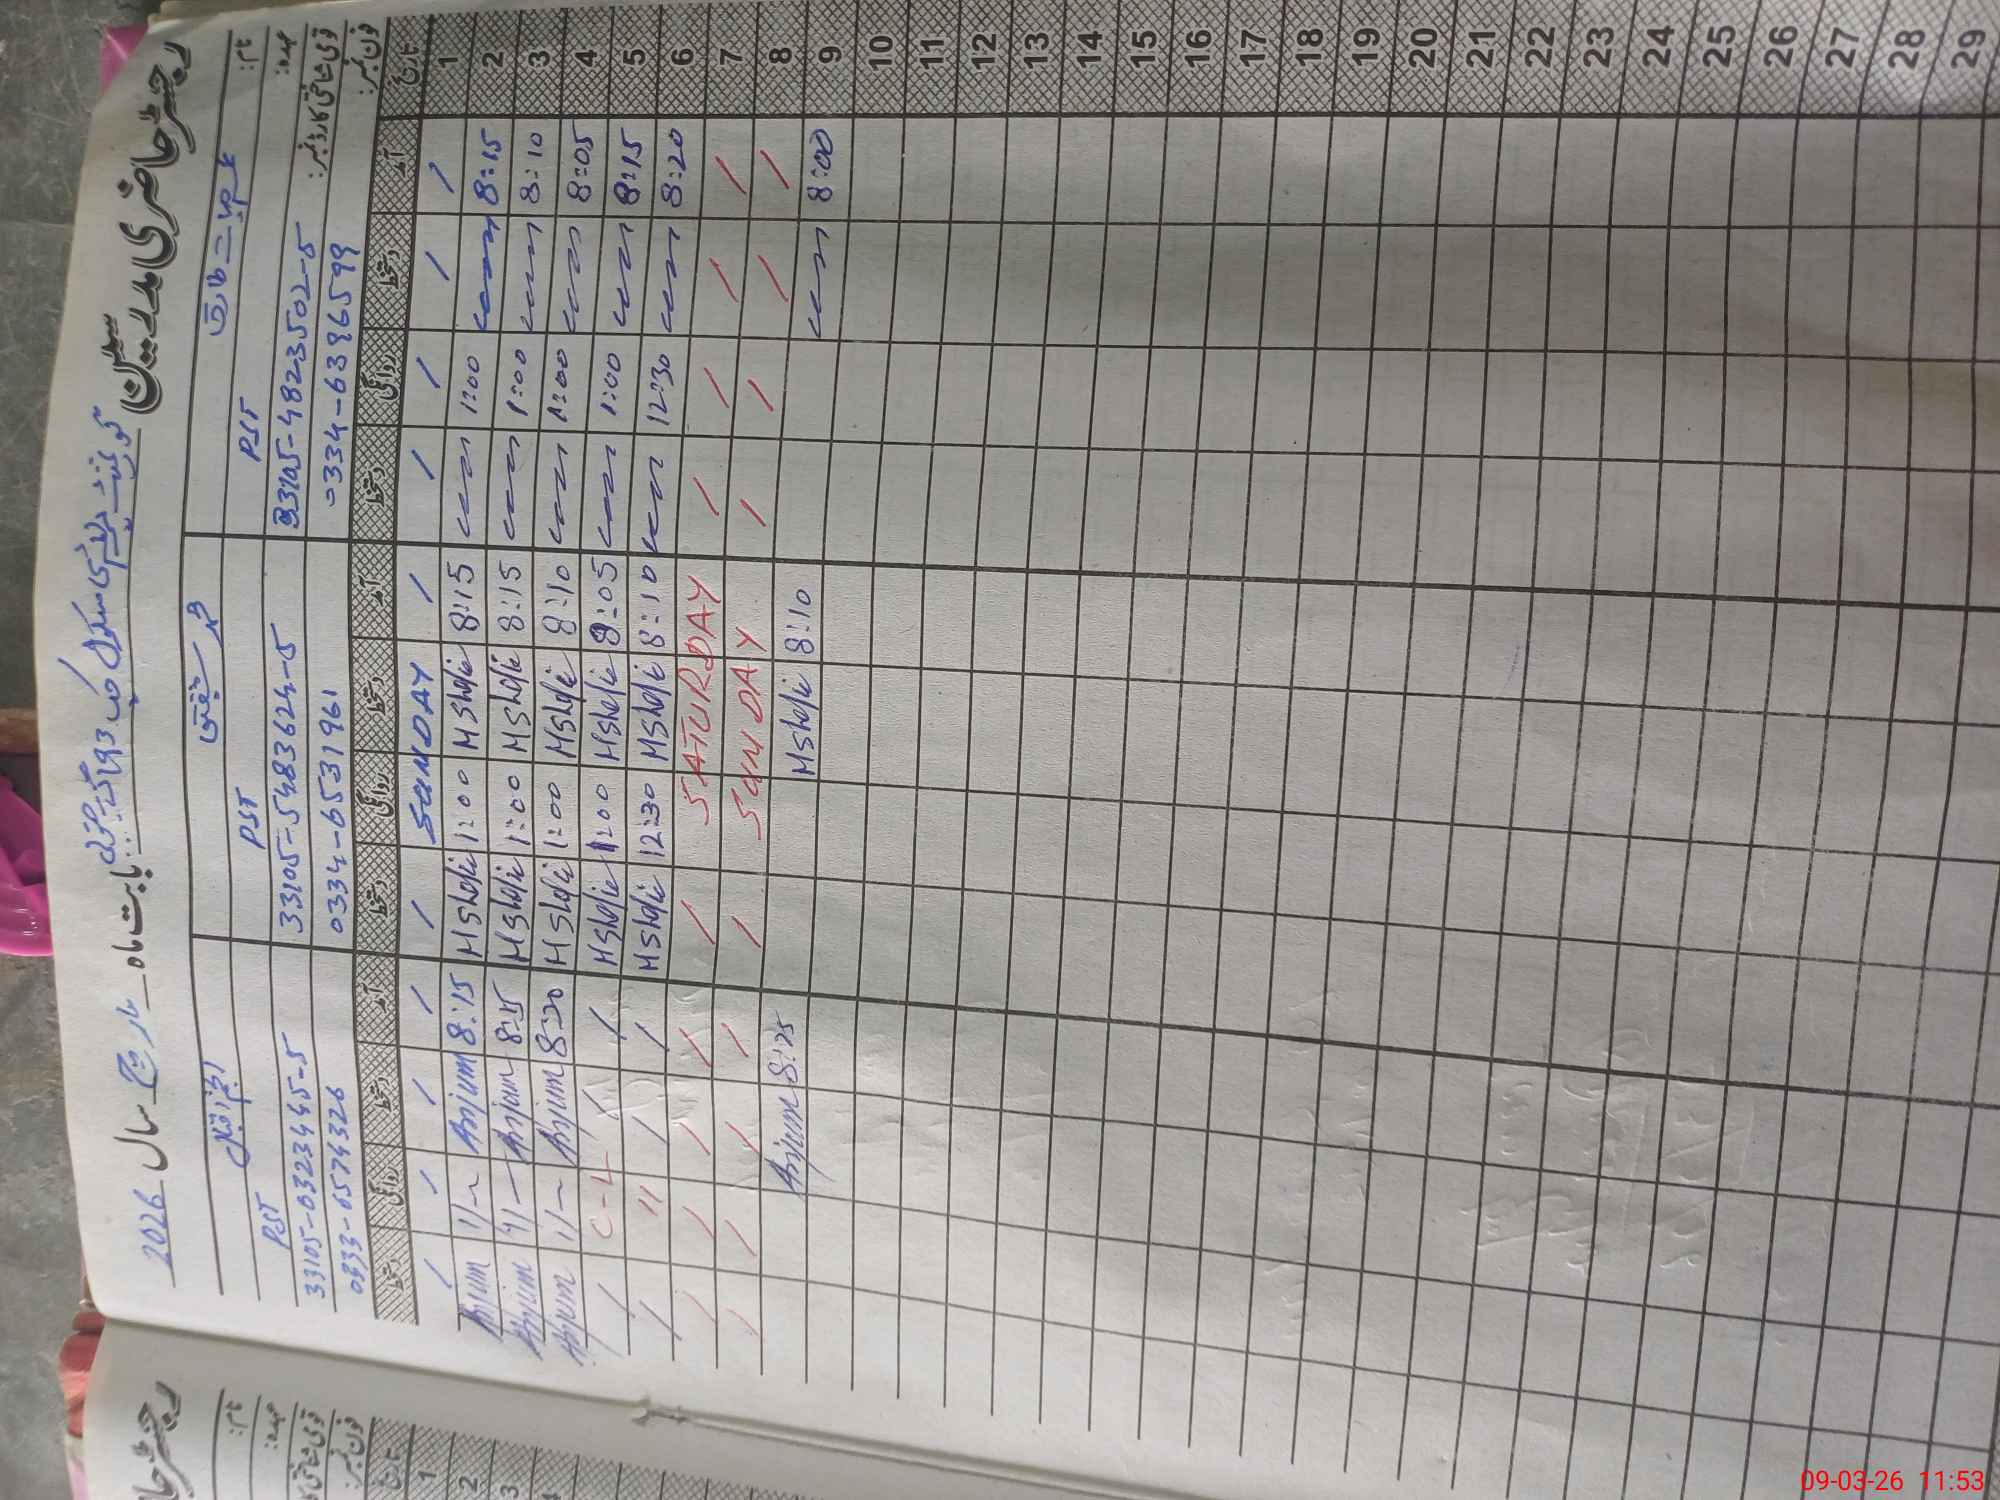 رجسٹر حاضری مدرسین گورنمنٹ پرائمری سکول بابت ماہ مارچ سال 2026
نام: طارق محمد شفیق انجم اقبال
عہدہ: PST PST PST
قومی شناختی کارڈ نمبر: 33105-4823502-5 33105-5483624-5 33105-0323445-5
فون نمبر: 0334-6396599 0334-6531961 0333-6574326
تاریخ آمد دستخط روانگی دستخط آمد دستخط روانگی دستخط آمد دستخط روانگی دستخط
1 / / / / / SUNDAY / / / / /
2 8:15 1:00 8:15 MShafic 1:00 MShafic 8:15 Anjum 1/- Anjum
3 8:10 1:00 8:15 MShafic 1:00 MShafic 8:15 Anjum 1/- Anjum
4 8:05 1:00 8:10 MShafic 1:00 MShafic 8:20 Anjum 1/- Anjum
5 8:15 1:00 8:05 MShafic 1:00 MShafic / / C-L /
6 8:20 12:30 8:10 MShafic 12:30 MShafic / / 11 /
7 / / / / SATURDAY / / / / /
8 / / / / SUNDAY / / / / /
9 8:00 8:10 MShafic 8:25 Anjum
10
11
12
13
14
15
16
17
18
19
20
21
22
23
24
25
26
27
28
29
رجسٹر حا
نام:
عہدہ:
فون نمبر:
تاریخ
1
2
3
4
09-03-26 11:53